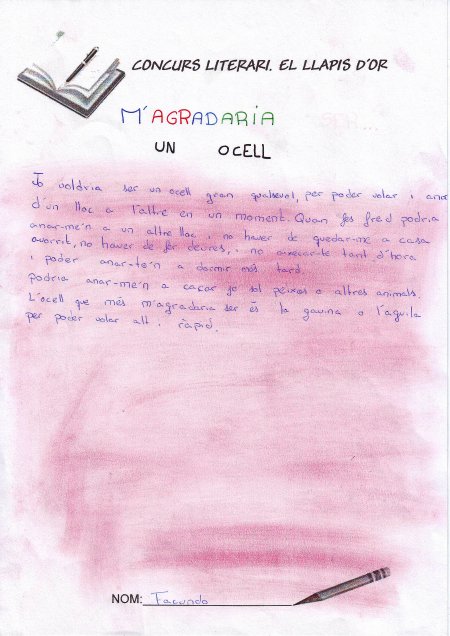 CONCURS LITERARI. EL LLAPIS D'OR
M'AGRADARIA
SER...
UN OCELL
Jo voldria ser un ocell gran qualsevol, per poder volar i anar
d'un lloc a l'altre en un moment. Quan fes fred podria
anar-me'n a un altre lloc i no haver de quedar-me a casa
avorrit, no haver de fer deures, i no aixecar-te tant d'hora
i poder anar-te'n a dormir més tard.
podria anar-me'n a caçar jo sol peixos o altres animals.
L'ocell que més m'agradaria ser és la gavina o l'aguila
per poder volar alt i ràpid.
NOM: Facundo